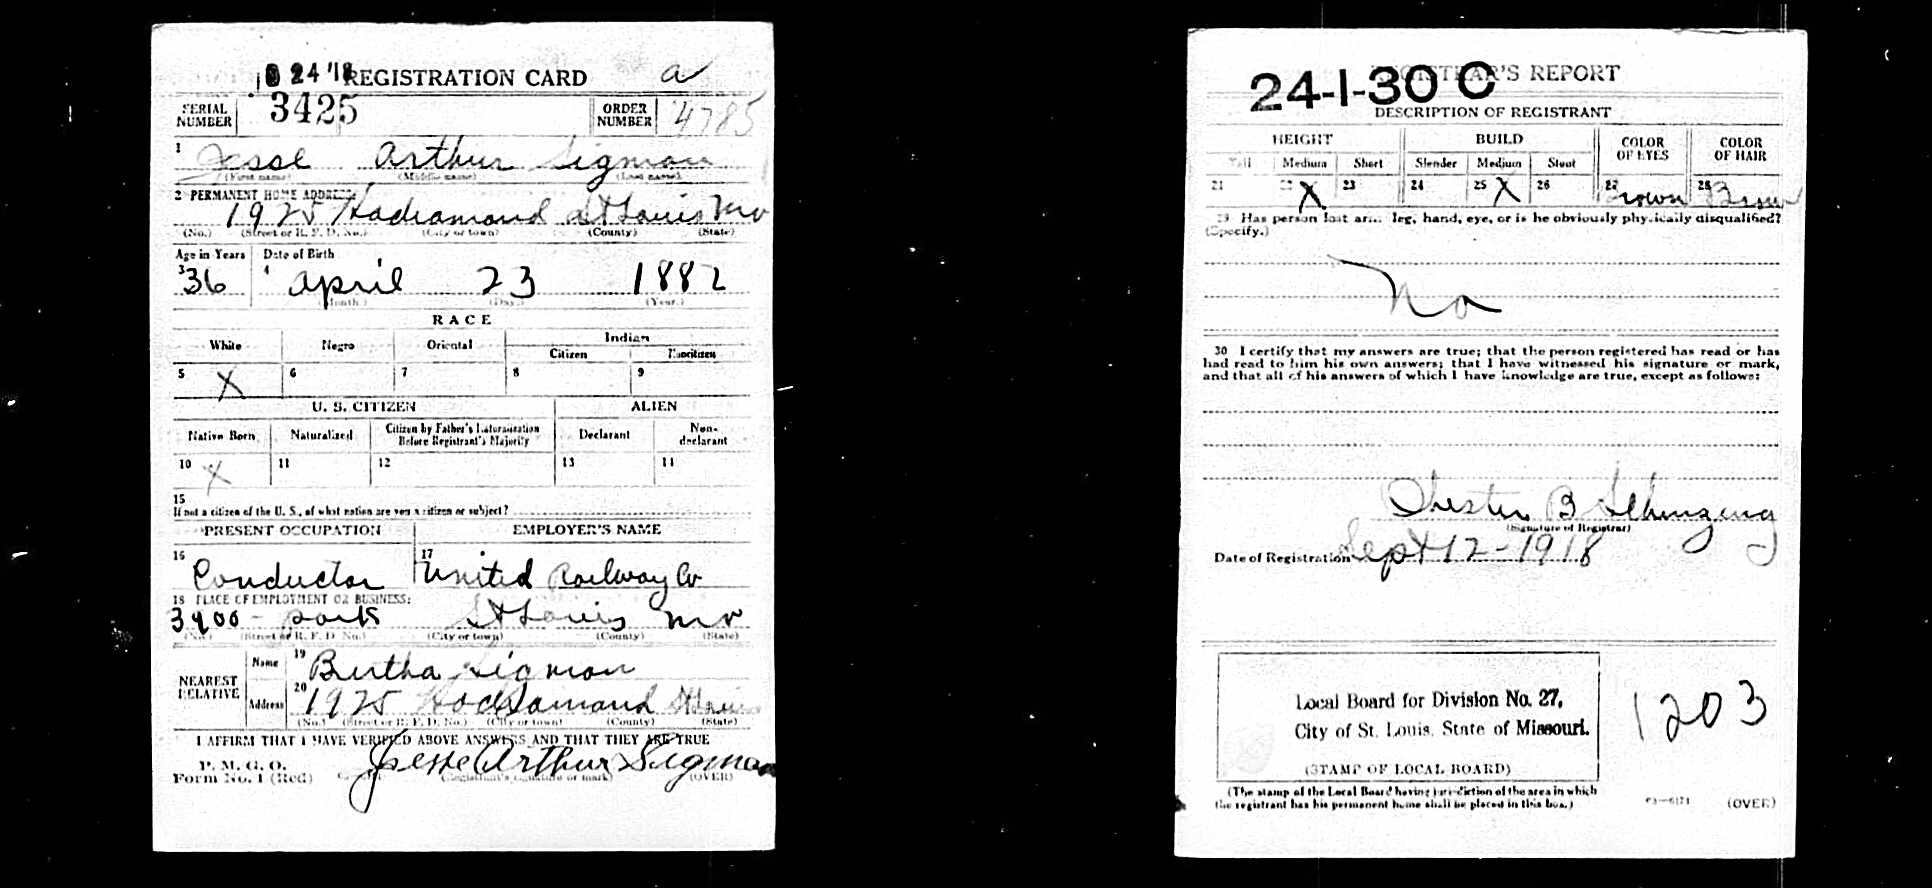 24 '18 REGISTRATION CARD a
SERIAL NUMBER 3425 ORDER NUMBER 4785
1 Jesse Arthur Sigman
(First name) (Middle name) (Last name)
2 PERMANENT HOME ADDRESS:
1925 Hodiamond St Louis Mo
(No.) (Street or R. F. D. No.) (City or town) (County) (State)
Age in Years Date of Birth
3 36 4 April 23 1882
(Month.) (Day.) (Year.)
RACE
White Negro Oriental Indian
Citizen Noncitizen
5 X 6 7 8 9
U. S. CITIZEN ALIEN
Native Born Naturalized Citizen by Father's Naturalization Before Registrant's Majority Declarant Non-declarant
10 X 11 12 13 14
15
If not a citizen of the U. S., of what nation are you a citizen or subject?
PRESENT OCCUPATION EMPLOYER'S NAME
16 Conductor 17 United Railway Co
18 PLACE OF EMPLOYMENT OR BUSINESS:
3900 - park St Louis Mo
(No.) (Street or R. F. D. No.) (City or town) (County) (State)
NEAREST RELATIVE Name 19 Bertha Sigman
Address 20 1925 Hodiamond St Louis
(No.) (Street or R. F. D. No.) (City or town) (County) (State)
I AFFIRM THAT I HAVE VERIFIED ABOVE ANSWERS AND THAT THEY ARE TRUE
P. M. G. O.
Form No. 1 (Red) Jesse Arthur Sigman
(Registrant's signature or mark) (OVER)
REGISTRAR'S REPORT
24-1-30 C
DESCRIPTION OF REGISTRANT
HEIGHT BUILD COLOR OF EYES COLOR OF HAIR
Tall Medium Short Slender Medium Stout
21 22 X 23 24 25 X 26 27 Brown 28 Brown
29 Has person lost arm, leg, hand, eye, or is he obviously physically disqualified?
(Specify.)
No
30 I certify that my answers are true; that the person registered has read or has
had read to him his own answers; that I have witnessed his signature or mark,
and that all of his answers of which I have knowledge are true, except as follows:
Chester B
(Signature of Registrar)
Date of Registration Sept 12 - 1918
Local Board for Division No. 27,
City of St. Louis, State of Missouri.
(STAMP OF LOCAL BOARD)
1203
(The stamp of the Local Board having jurisdiction of the area in which
the registrant has his permanent home shall be placed in this box.)
03-6171 (OVER)